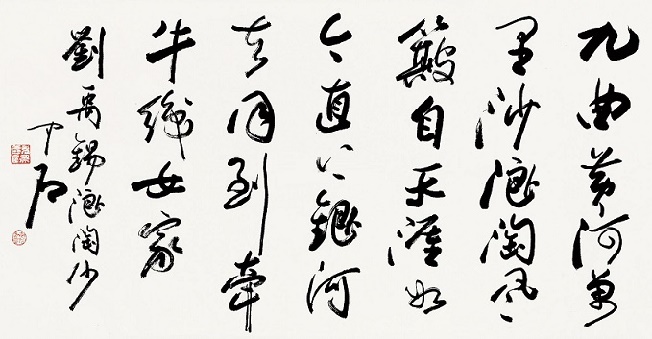 九曲黃河萬
里沙浪淘風
簸自天涯如
今直上銀河
去同到牽
牛織女家
劉禹錫浪淘沙
中石